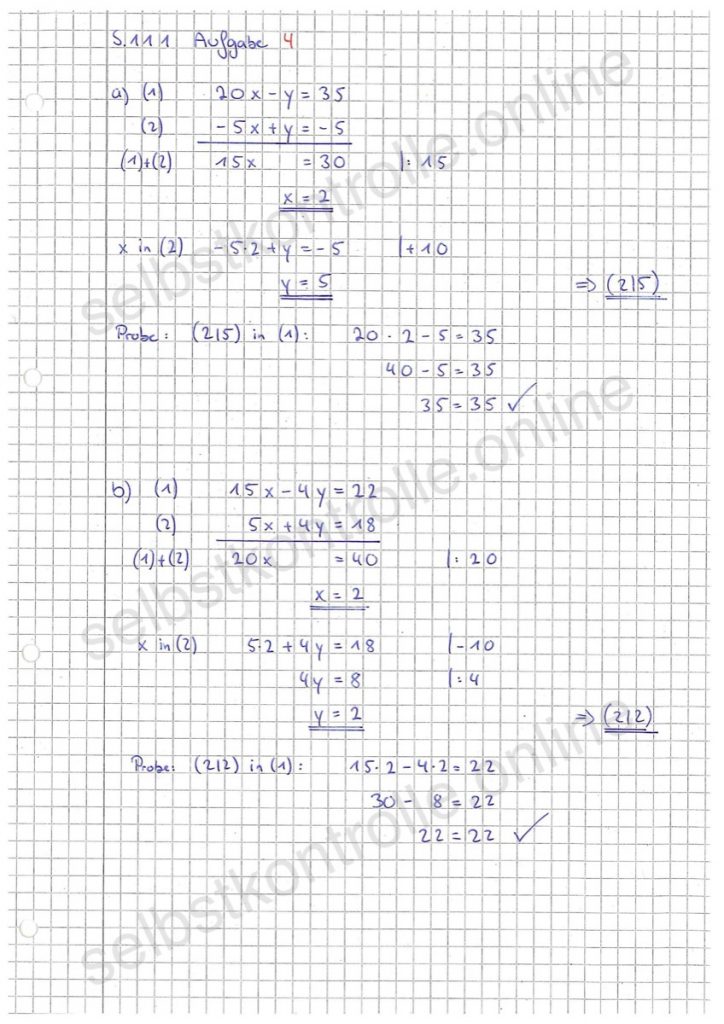 S.111 Aufgabe 4
a) (1) 20x - y = 35
(2) -5x + y = -5
(1)+(2) 15x = 30 |: 15
x = 2
x in (2) -5·2 + y = -5 |+10
y = 5
=> (2|5)
Probe: (2|5) in (1): 20 · 2 - 5 = 35
40 - 5 = 35
35 = 35 ✓
b) (1) 15x - 4y = 22
(2) 5x + 4y = 18
(1)+(2) 20x = 40 |: 20
x = 2
x in (2) 5·2 + 4y = 18 |-10
4y = 8 |: 4
y = 2
=> (2|2)
Probe: (2|2) in (1): 15·2 - 4·2 = 22
30 - 8 = 22
22 = 22 ✓
selbstkontrolle.online
selbstkontrolle.online
selbstkontrolle.online